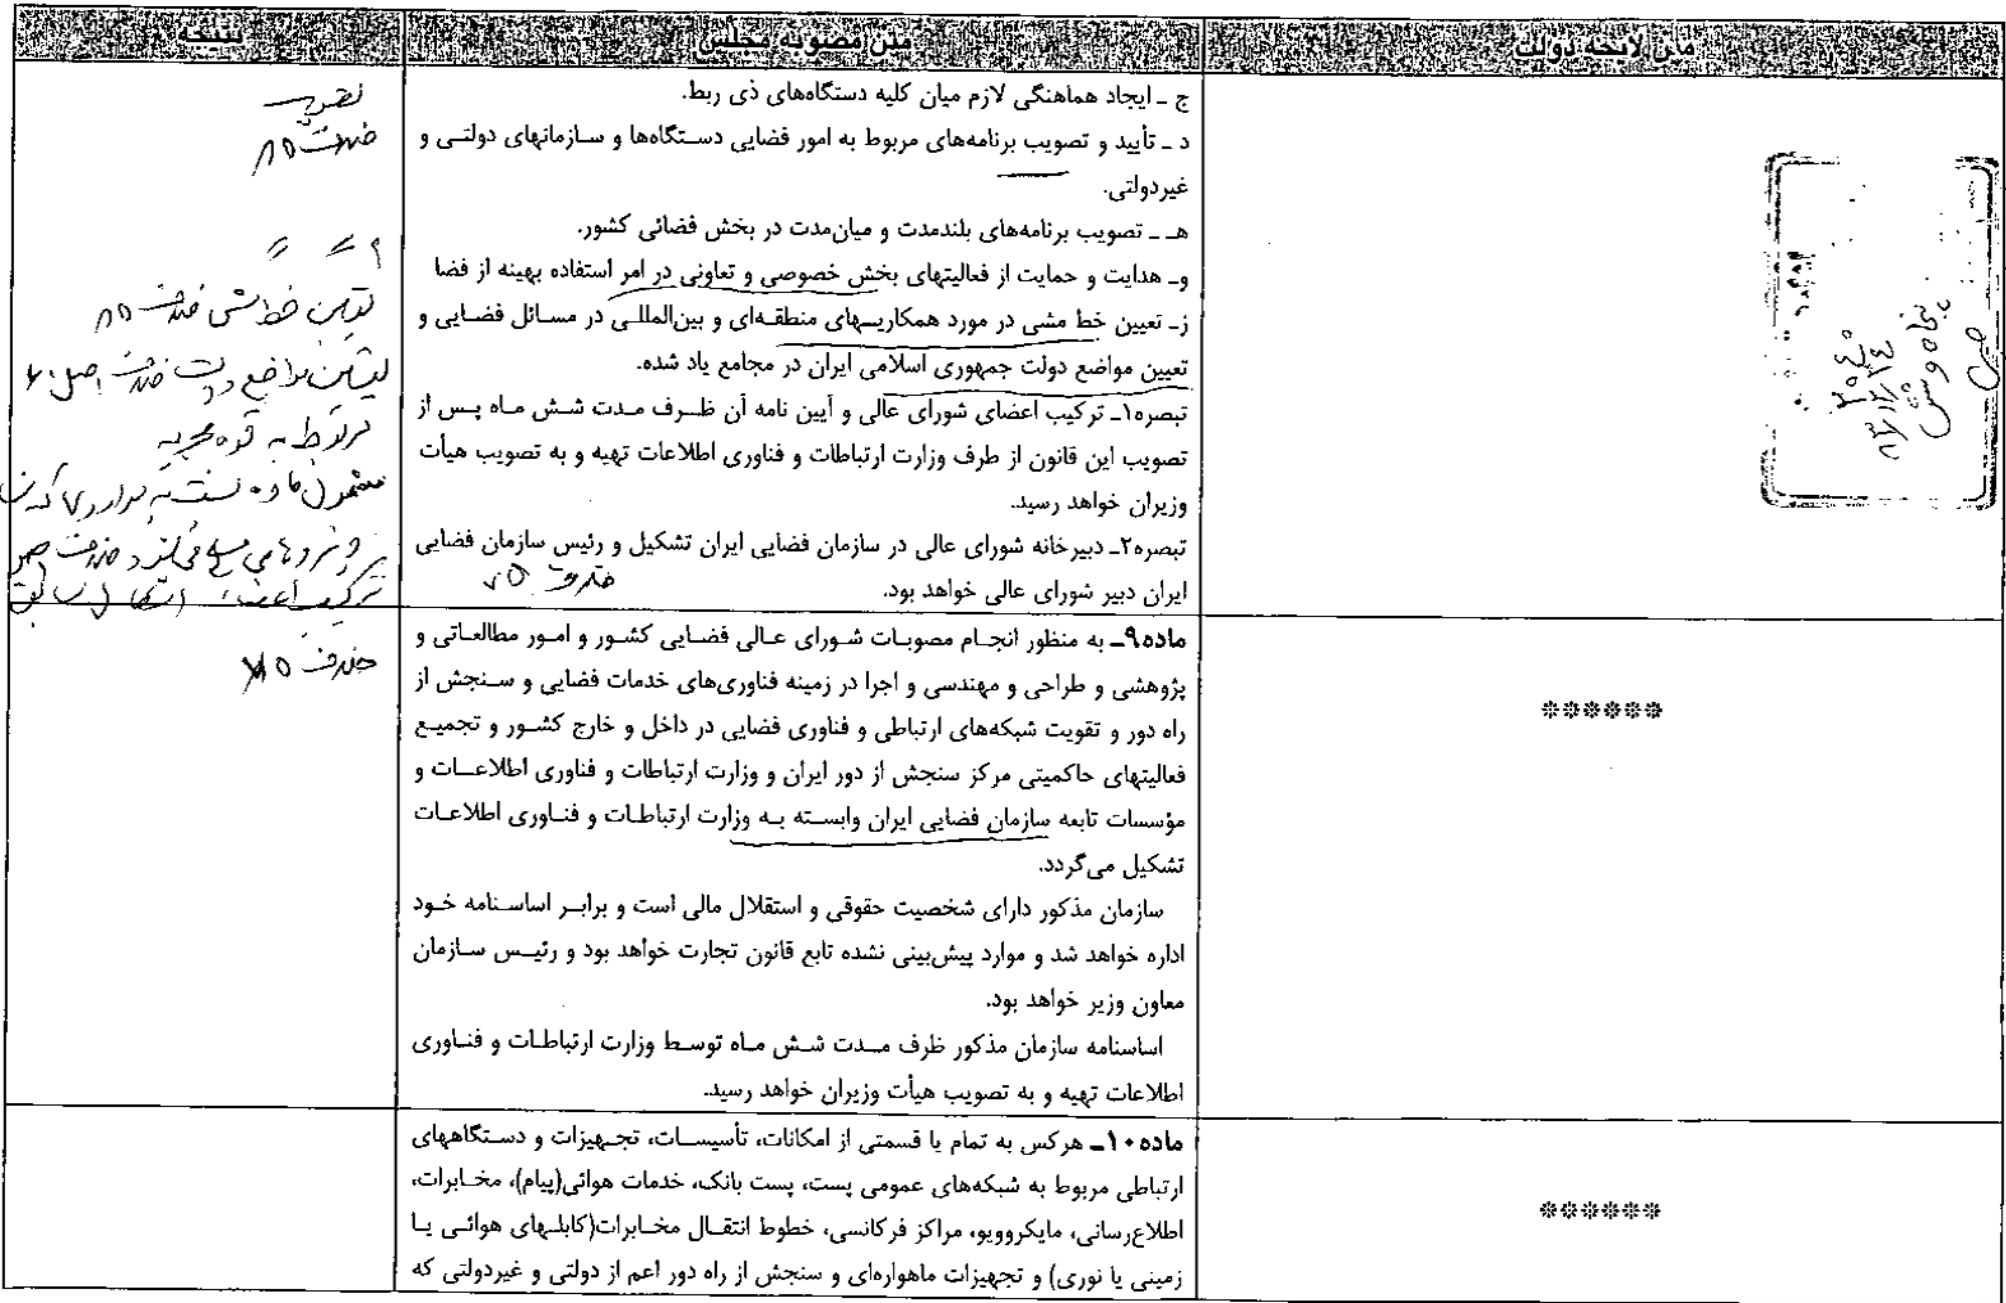 متن لایحه دولت
متن مصوبه مجلس
نتیجه
ج ـ ایجاد هماهنگی لازم میان کلیه دستگاه‌های ذی ربط.
د ـ تأیید و تصویب برنامه‌های مربوط به امور فضایی دستگاه‌ها و سازمانهای دولتی و
غیردولتی.
هـ ـ تصویب برنامه‌های بلندمدت و میان‌مدت در بخش فضائی کشور.
و ـ هدایت و حمایت از فعالیتهای بخش خصوصی و تعاونی در امر استفاده بهینه از فضا
ز ـ تعیین خط مشی در مورد همکاریهای منطقه‌ای و بین‌المللی در مسائل فضایی و
تعیین مواضع دولت جمهوری اسلامی ایران در مجامع یاد شده.
تبصره۱ـ ترکیب اعضای شورای عالی و آیین نامه آن ظرف مدت شش ماه پس از
تصویب این قانون از طرف وزارت ارتباطات و فناوری اطلاعات تهیه و به تصویب هیأت
وزیران خواهد رسید.
تبصره۲ـ دبیرخانه شورای عالی در سازمان فضایی ایران تشکیل و رئیس سازمان فضایی
ایران دبیر شورای عالی خواهد بود.
تعیین خط مشی
تعیین مواضع دولت
مربوط به قوه مجریه
ماده۹ـ به منظور انجام مصوبات شورای عالی فضایی کشور و امور مطالعاتی و
پژوهشی و طراحی و مهندسی و اجرا در زمینه فناوری‌های خدمات فضایی و سنجش از
راه دور و تقویت شبکه‌های ارتباطی و فناوری فضایی در داخل و خارج کشور و تجمیع
فعالیتهای حاکمیتی مرکز سنجش از دور ایران و وزارت ارتباطات و فناوری اطلاعات و
مؤسسات تابعه سازمان فضایی ایران وابسته به وزارت ارتباطات و فناوری اطلاعات
تشکیل می‌گردد.
سازمان مذکور دارای شخصیت حقوقی و استقلال مالی است و برابر اساسنامه خود
اداره خواهد شد و موارد پیش‌بینی نشده تابع قانون تجارت خواهد بود و رئیس سازمان
معاون وزیر خواهد بود.
اساسنامه سازمان مذکور ظرف مدت شش ماه توسط وزارت ارتباطات و فناوری
اطلاعات تهیه و به تصویب هیأت وزیران خواهد رسید.
******
ماده۱۰ـ هرکس به تمام یا قسمتی از امکانات، تأسیسات، تجهیزات و دستگاههای
ارتباطی مربوط به شبکه‌های عمومی پست، پست بانک، خدمات هوائی(پیام)، مخابرات،
اطلاع‌رسانی، مایکروویو، مراکز فرکانسی، خطوط انتقال مخابرات(کابلهای هوائی یا
زمینی یا نوری) و تجهیزات ماهواره‌ای و سنجش از راه دور اعم از دولتی و غیردولتی که
******